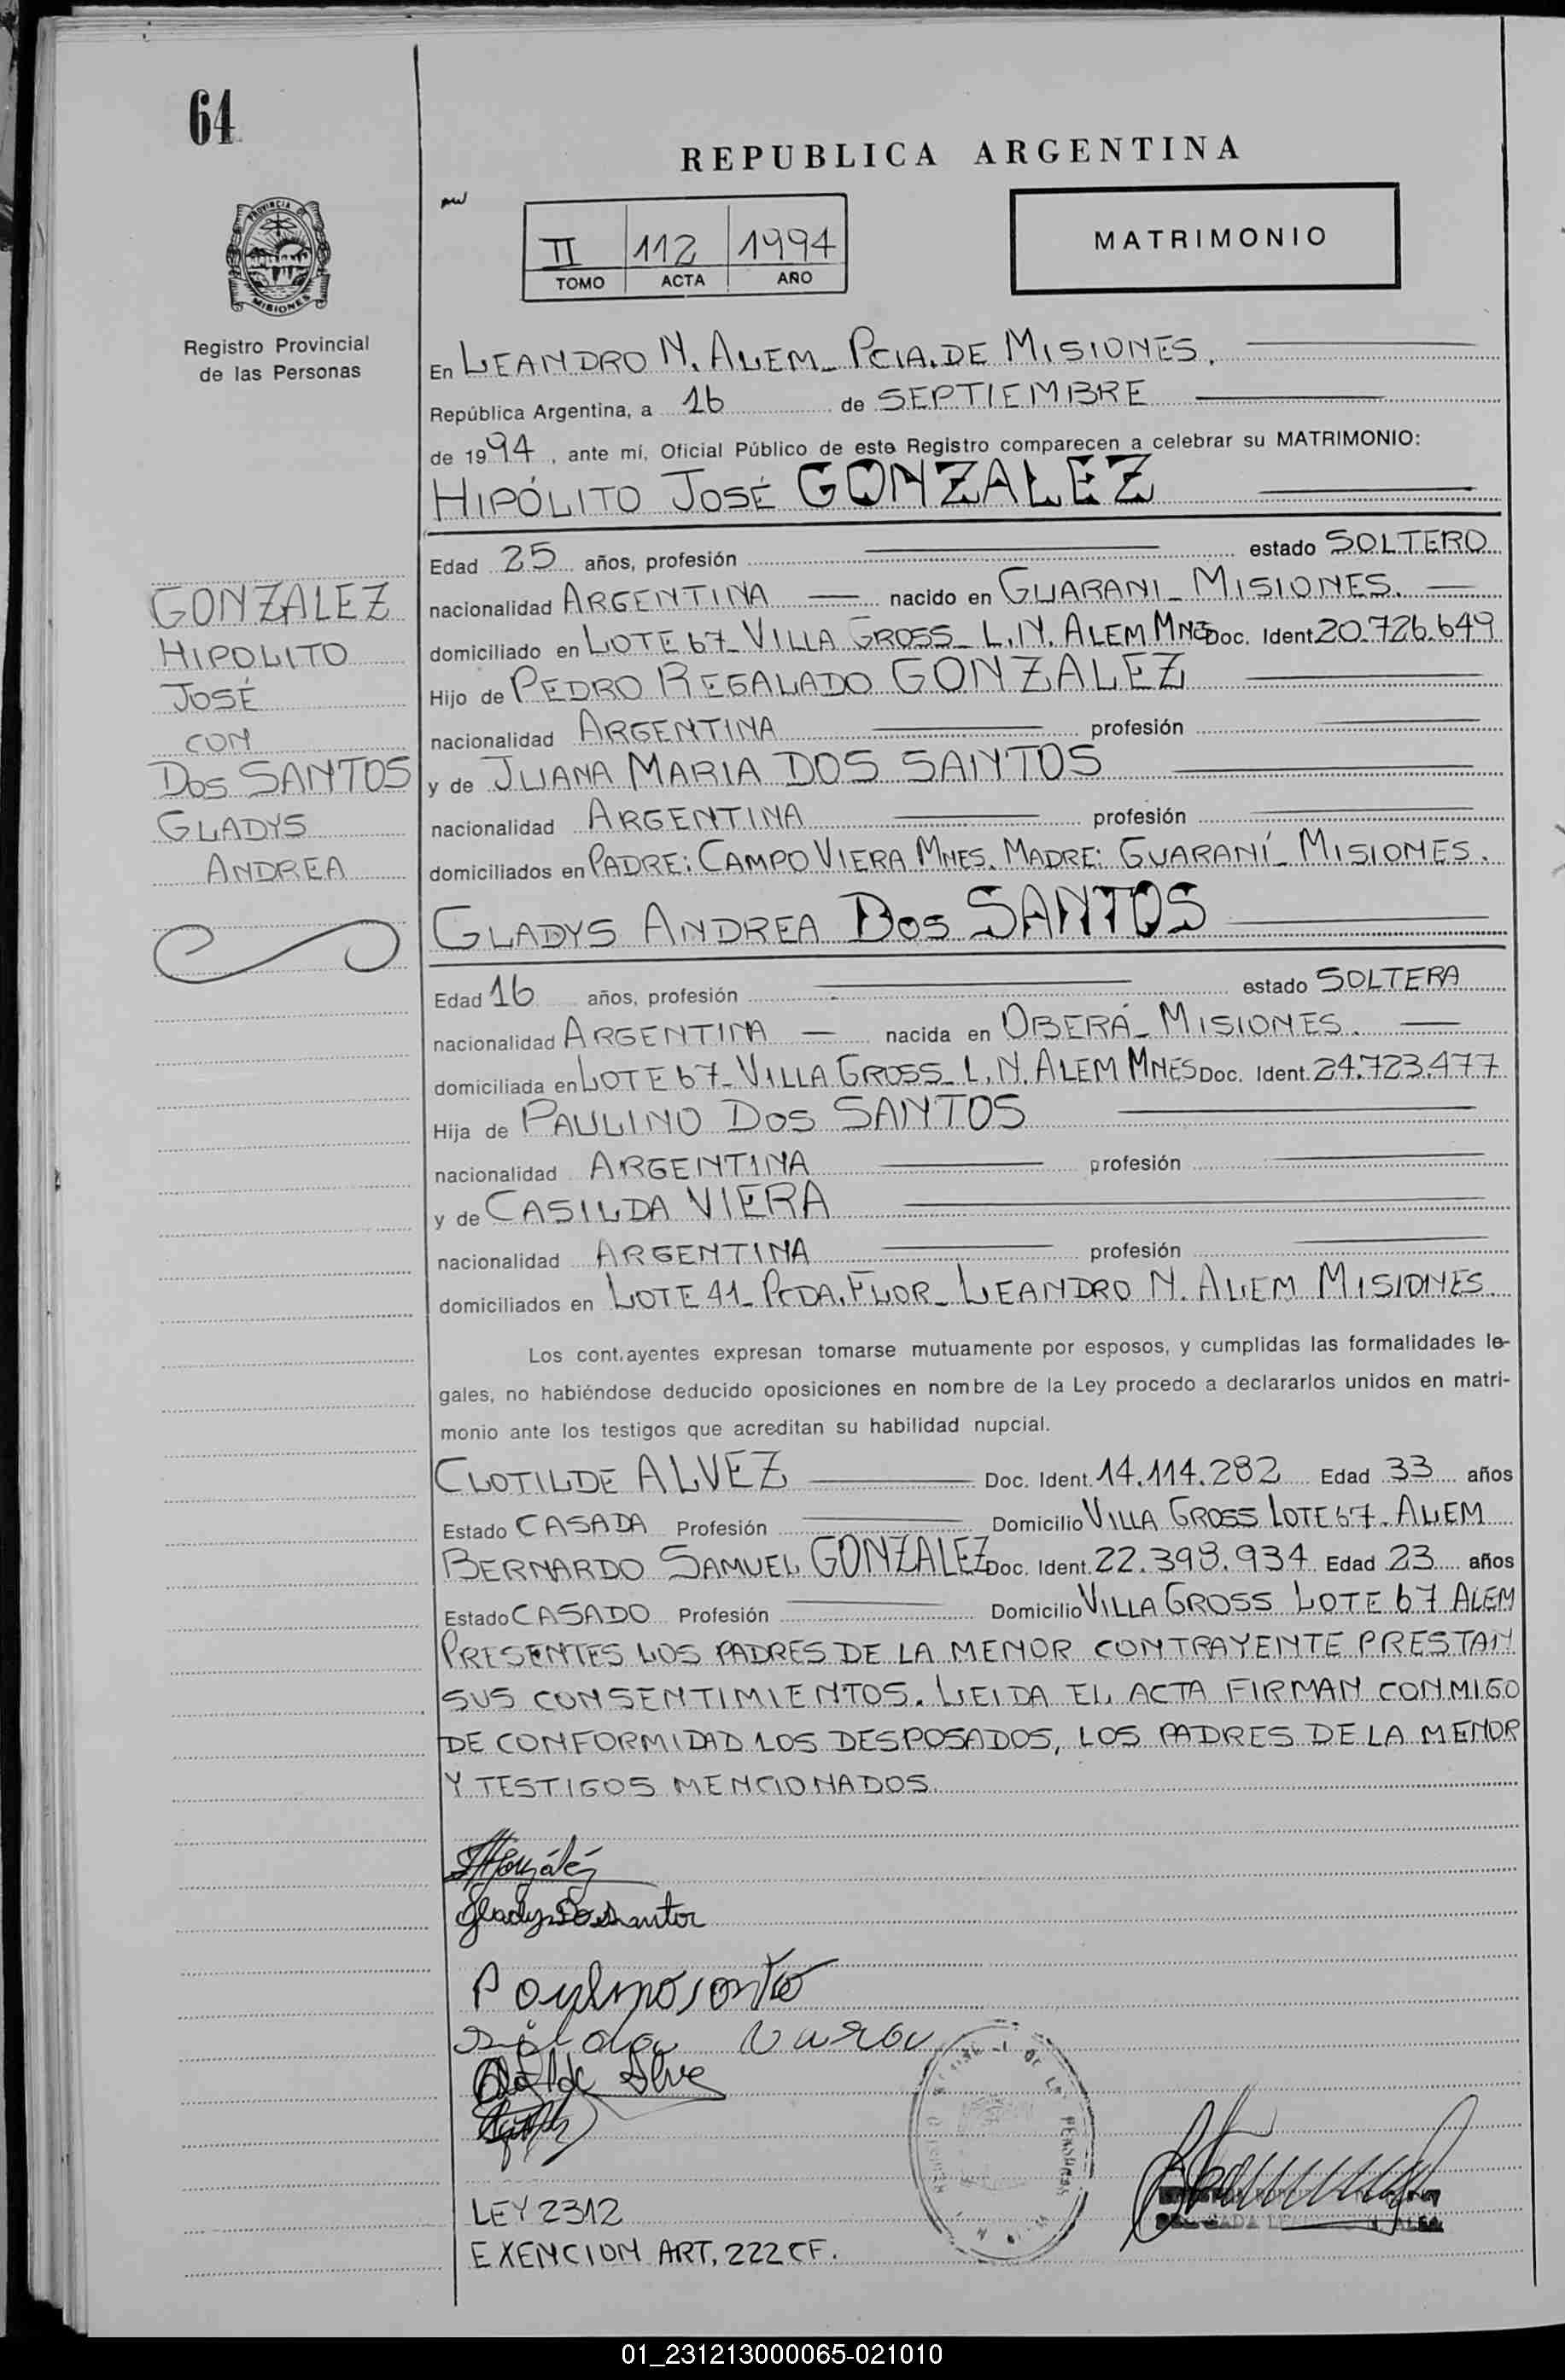 64
REPUBLICA ARGENTINA
PROVINCIA DE
MISIONES
Registro Provincial
de las Personas
II 112 1994
TOMO ACTA AÑO
MATRIMONIO
En LEANDRO N. ALEM_ PCIA. DE MISIONES.
República Argentina, a 16 de SEPTIEMBRE
de 1994, ante mí, Oficial Público de este Registro comparecen a celebrar su MATRIMONIO:
HIPÓLITO JOSÉ GONZALEZ
Edad 25 años, profesión estado SOLTERO
GONZALEZ
HIPOLITO
JOSÉ
CON
DOS SANTOS
GLADYS
ANDREA
nacionalidad ARGENTINA nacido en GUARANI_ MISIONES.
domiciliado en LOTE 67_ VILLA GROSS_ L.N. ALEM MNES Doc. Ident. 20.726.649
Hijo de PEDRO REGALADO GONZALEZ
nacionalidad ARGENTINA profesión
y de JUANA MARIA DOS SANTOS
nacionalidad ARGENTINA profesión
domiciliados en PADRE: CAMPO VIERA MNES. MADRE: GUARANÍ_ MISIONES.
GLADYS ANDREA DOS SANTOS
Edad 16 años, profesión estado SOLTERA
nacionalidad ARGENTINA nacida en OBERÁ_ MISIONES.
domiciliada en LOTE 67_ VILLA GROSS_ L.N. ALEM MNES Doc. Ident. 24.723.477
Hija de PAULINO DOS SANTOS
nacionalidad ARGENTINA profesión
y de CASILDA VIERA
nacionalidad ARGENTINA profesión
domiciliados en LOTE 41_ PCDA. FLOR_ LEANDRO N. ALEM MISIONES.
Los cont.ayentes expresan tomarse mutuamente por esposos, y cumplidas las formalidades le-
gales, no habiéndose deducido oposiciones en nombre de la Ley procedo a declararlos unidos en matri-
monio ante los testigos que acreditan su habilidad nupcial.
CLOTILDE ALVEZ Doc. Ident. 14.114.282 Edad 33 años
Estado CASADA Profesión Domicilio VILLA GROSS LOTE 67. ALEM
BERNARDO SAMUEL GONZALEZ Doc. Ident. 22.398.934 Edad 23 años
Estado CASADO Profesión Domicilio VILLA GROSS LOTE 67 ALEM
PRESENTES LOS PADRES DE LA MENOR CONTRAYENTE PRESTAN
SUS CONSENTIMIENTOS. LEIDA EL ACTA FIRMAN CONMIGO
DE CONFORMIDAD LOS DESPOSADOS, LOS PADRES DE LA MENOR
Y TESTIGOS MENCIONADOS.
Gladys Dos Santos
LEY 2312
EXENCION ART. 222 CF.
01_231213000065-021010